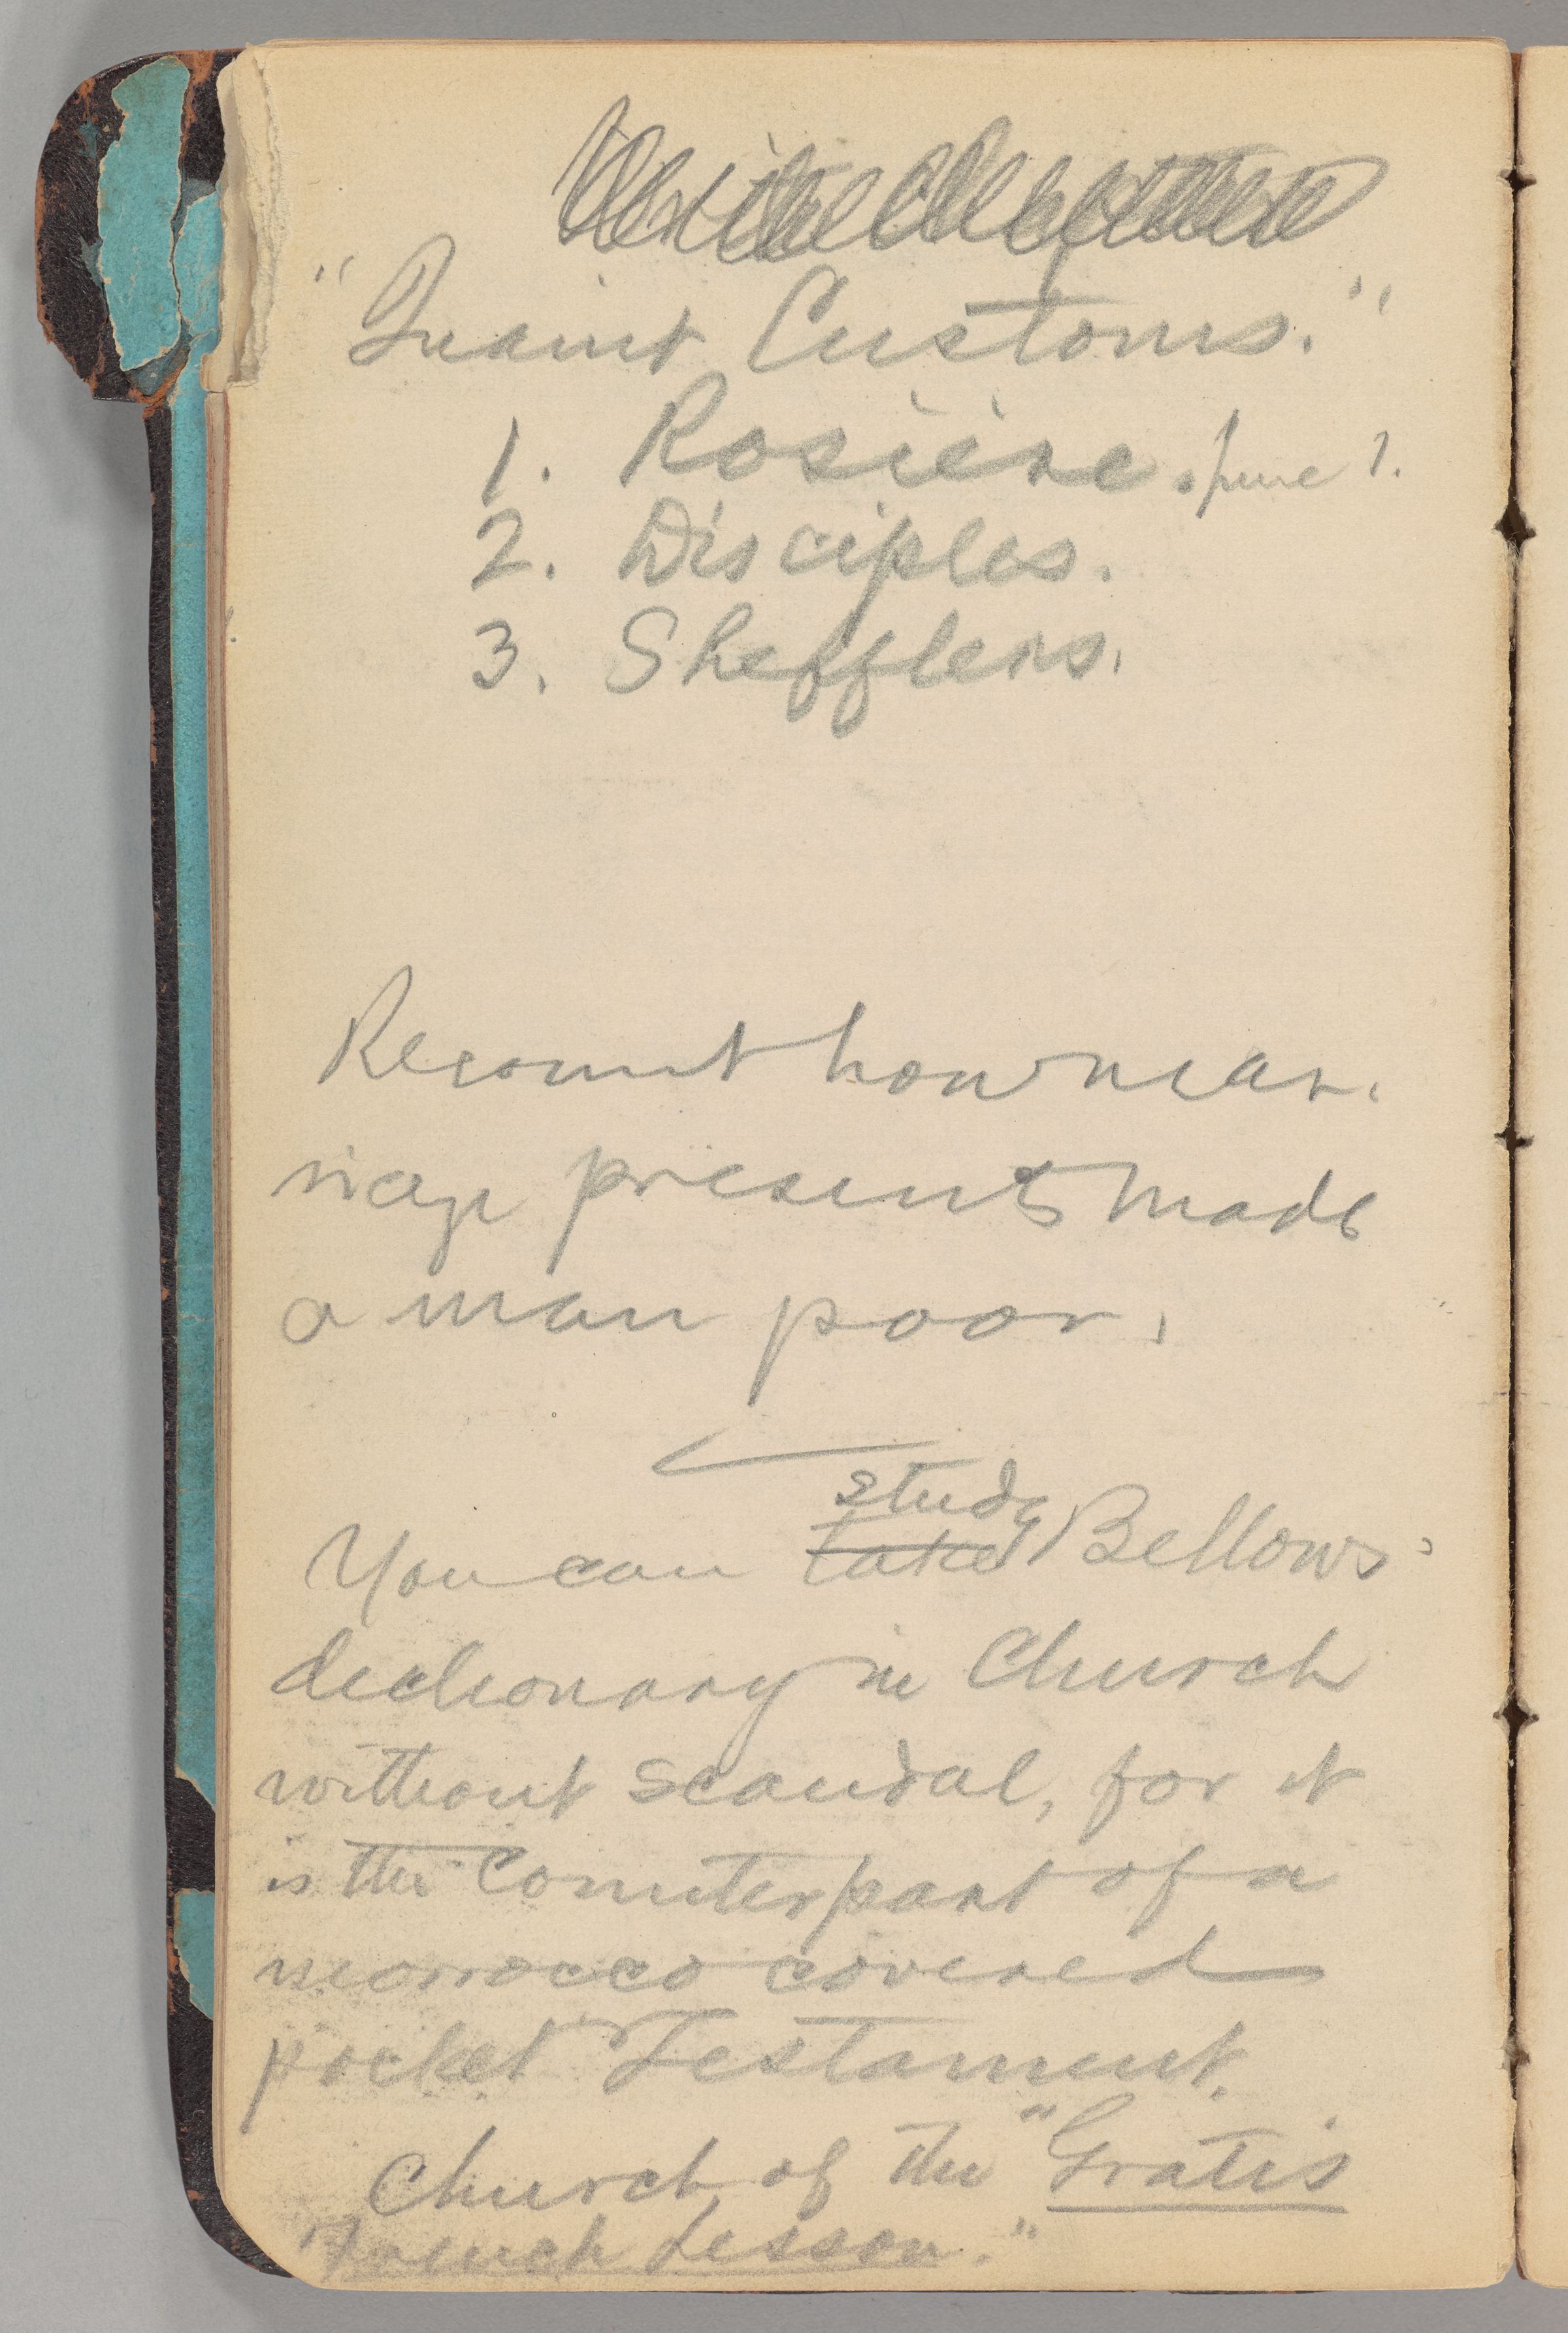 "Quaint Customs."
1. Rosière. June 1.
2. Disciples.
3. Shefflers.
Recount how mar-
riage presents made
a man poor.
study
You can take Bellows'
dictionary in Church
without scandal, for it
is the counterpart of a
morrocco covered
pocket Testament.
Church of the "Gratis
French Lesson."